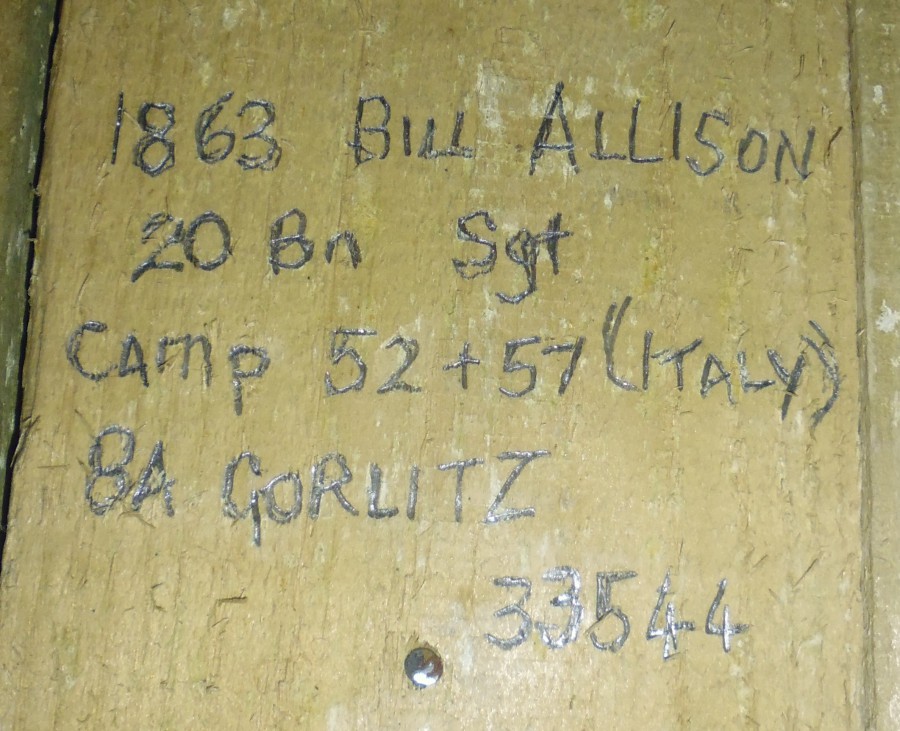 1863 BILL ALLISON
20 Bn Sgt
CAmp 52 + 57 (ITALY)
8A GORLITZ
33544